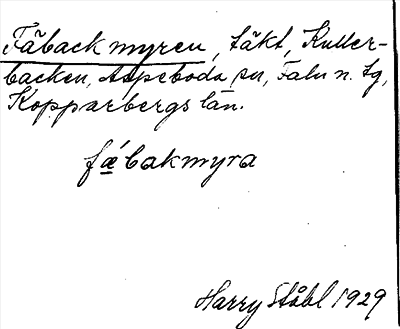 Fäbackmyren, täkt, Kuller-
backen, Aspeboda sn, Falu n. tg,
Kopparbergs län.
fǽbakmyra
Harry Ståhl 1929